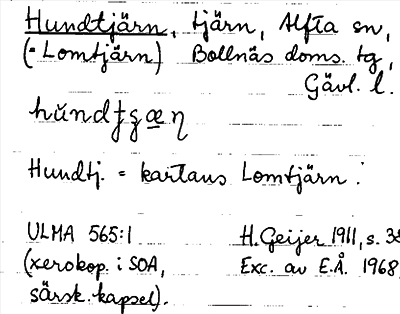 Hundtjärn, tjärn, Alfta sn,
(= Lomtjärn) Bollnäs doms. tg,
Gävl. l.
Hundtj. = kartans Lomtjärn.
ULMA 565:1 H. Geijer 1911, s. 38
(xerokop. i SOA, Exc. av E.Å. 1968
särsk. kapsel).